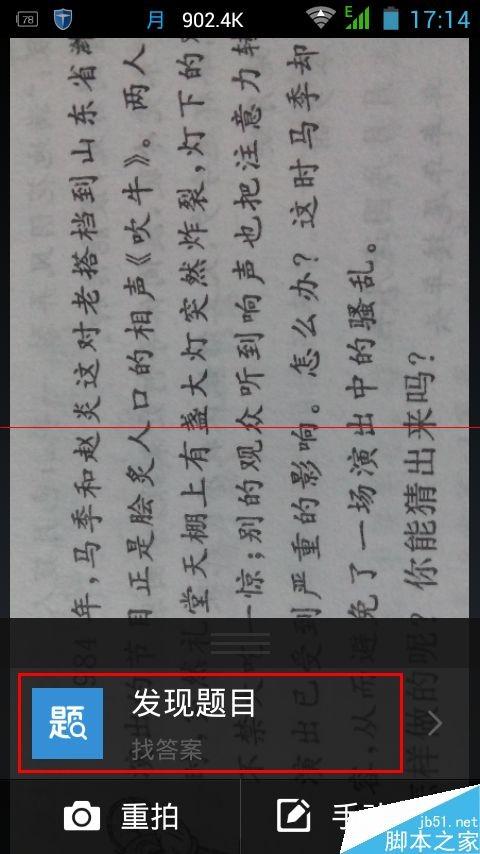 78
月
902.4K
E
17:14
984年,马季和赵炎这对老搭档到山东省
出的节目正是脍炙人口的相声《吹牛》。两人
然礼堂天棚上有盏大灯突然炸裂,灯下的
不禁大吃一惊;别的观众听到响声也把注意力转
演出已受到严重的影响。怎么办?这时马季却
,从而避免了一场演出中的骚乱。
样做的呢?你能猜出来吗?
题
发现题目
找答案
重拍
手
jb51.net
脚本之家